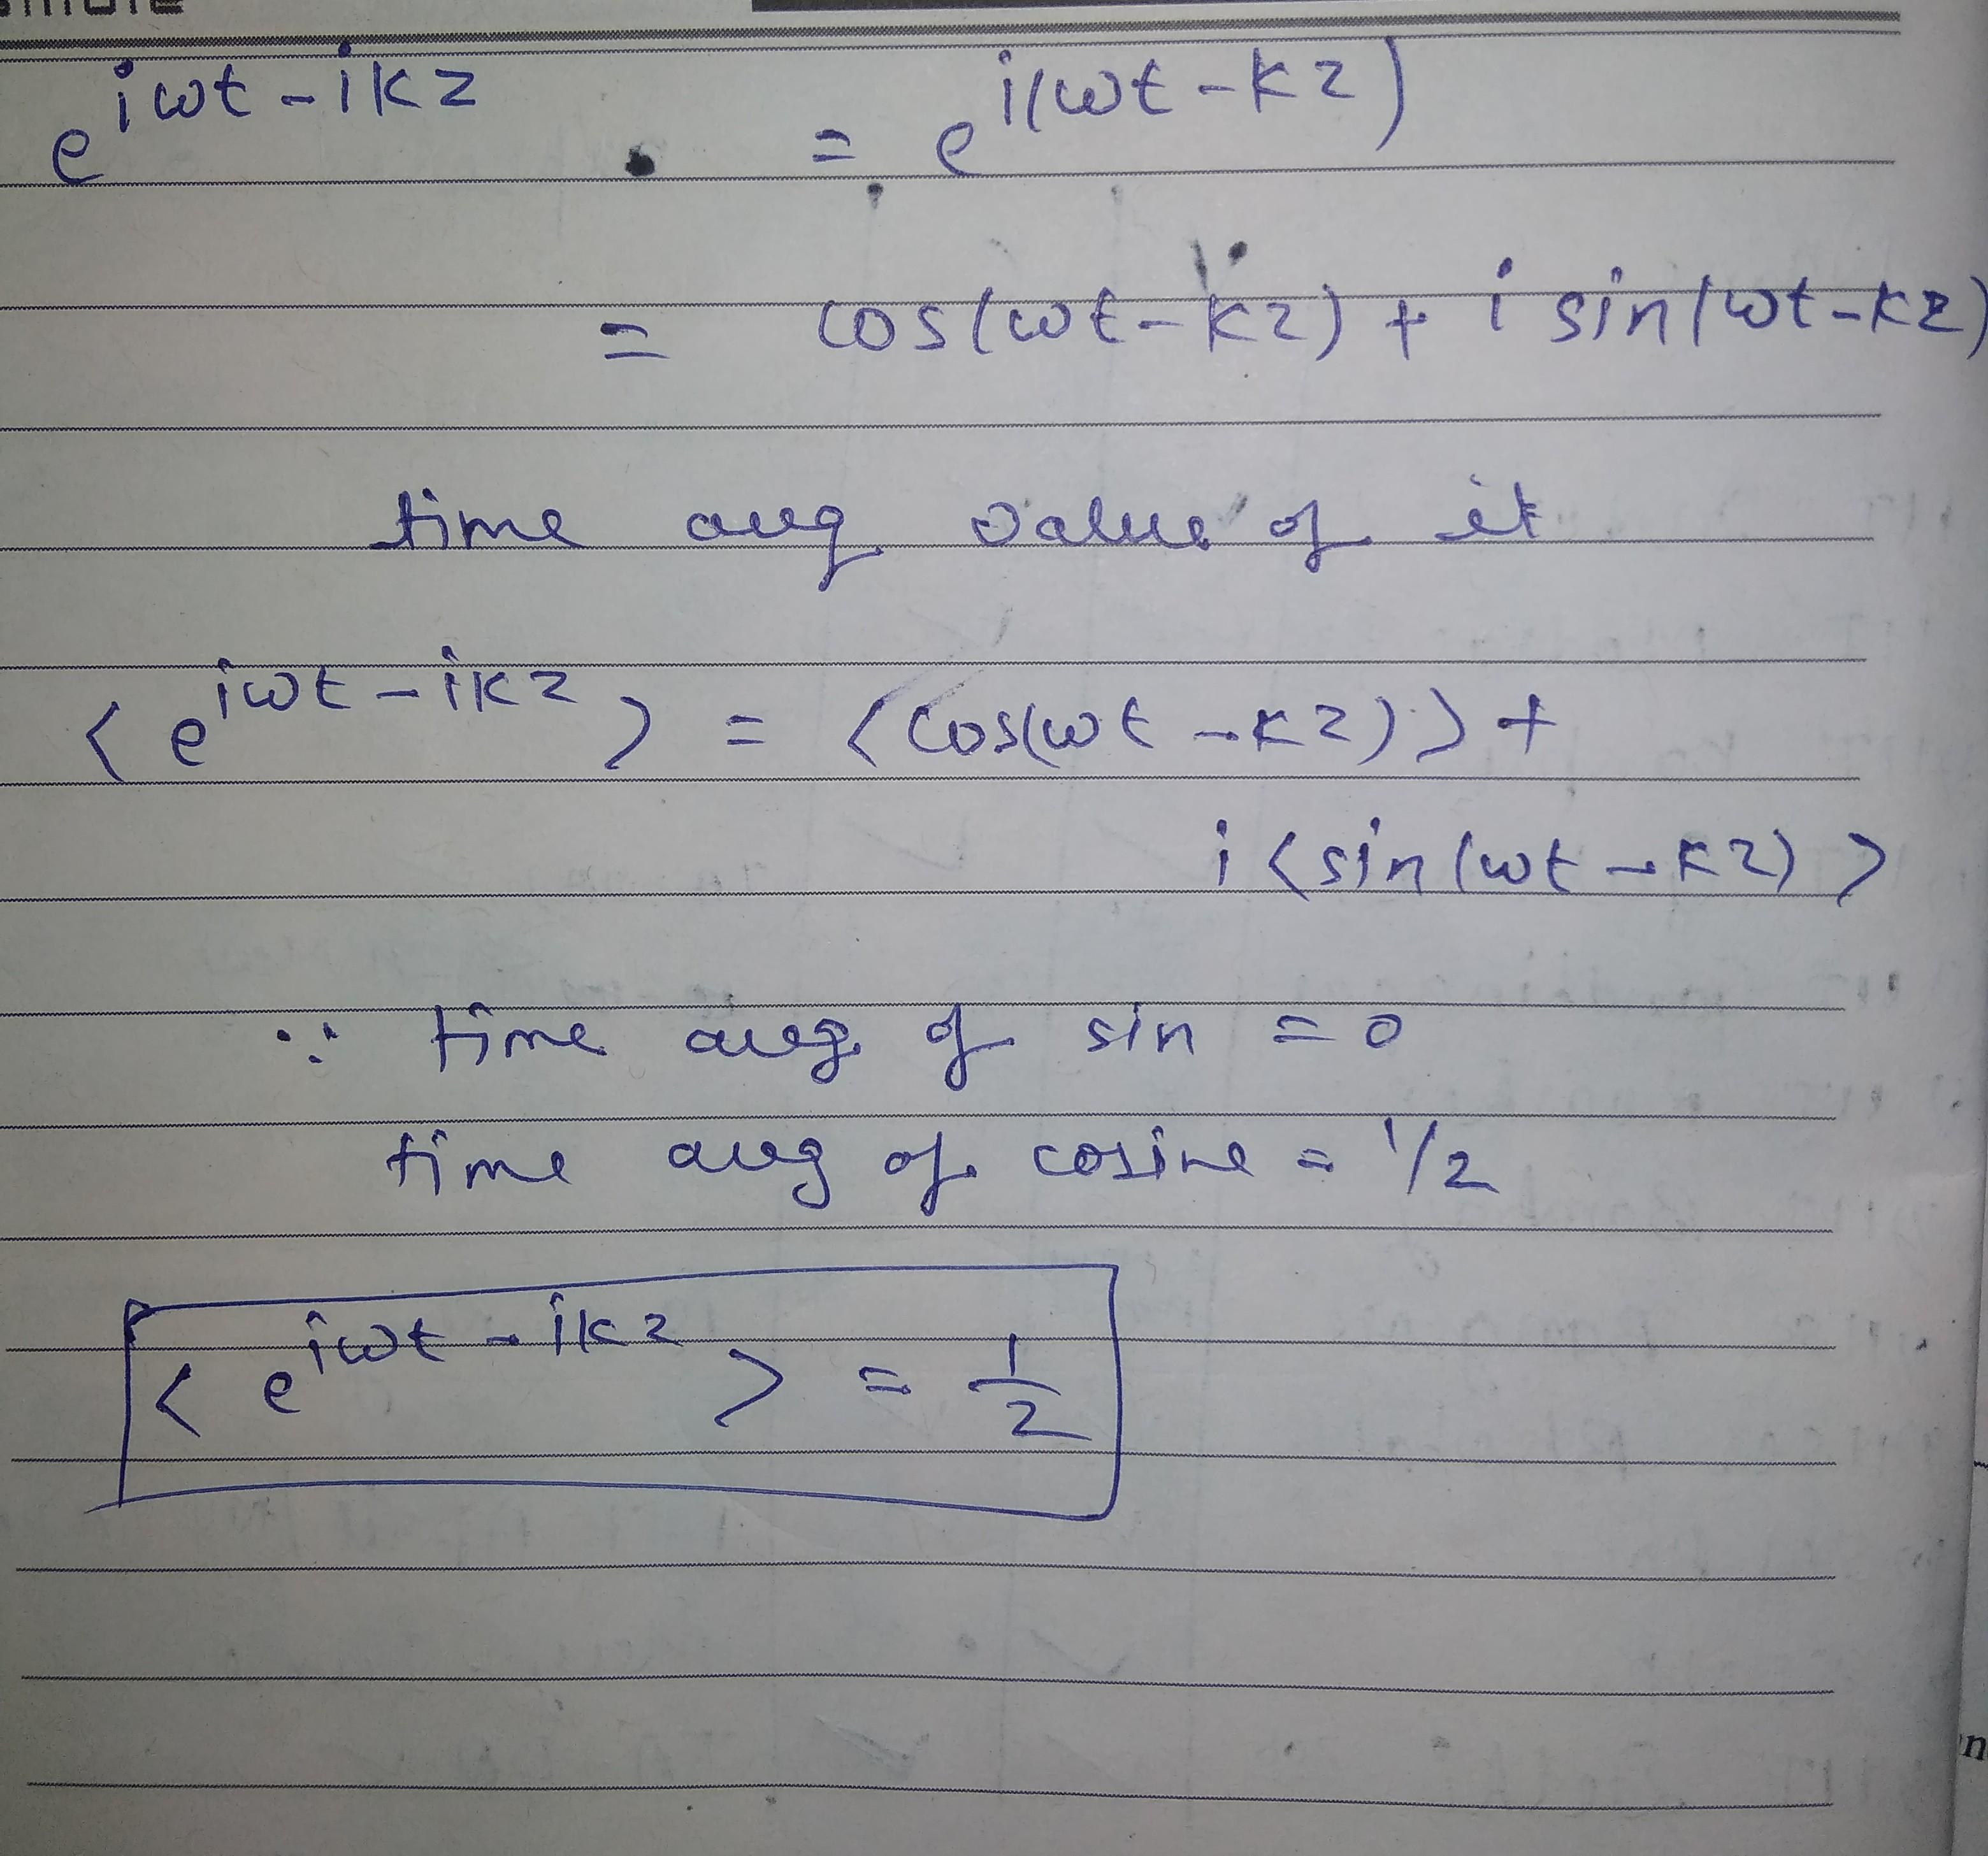 e^{iωt - ikz} = e^{i(ωt - kz)}
= cos(ωt - kz) + i sin(ωt - kz)
time avg value of it
⟨e^{iωt - ikz}⟩ = ⟨cos(ωt - kz)⟩ +
i⟨sin(ωt - kz)⟩
∵ time avg of sin = 0
time avg of cosine = 1/2
⟨e^{iωt - ikz}⟩ = 1/2